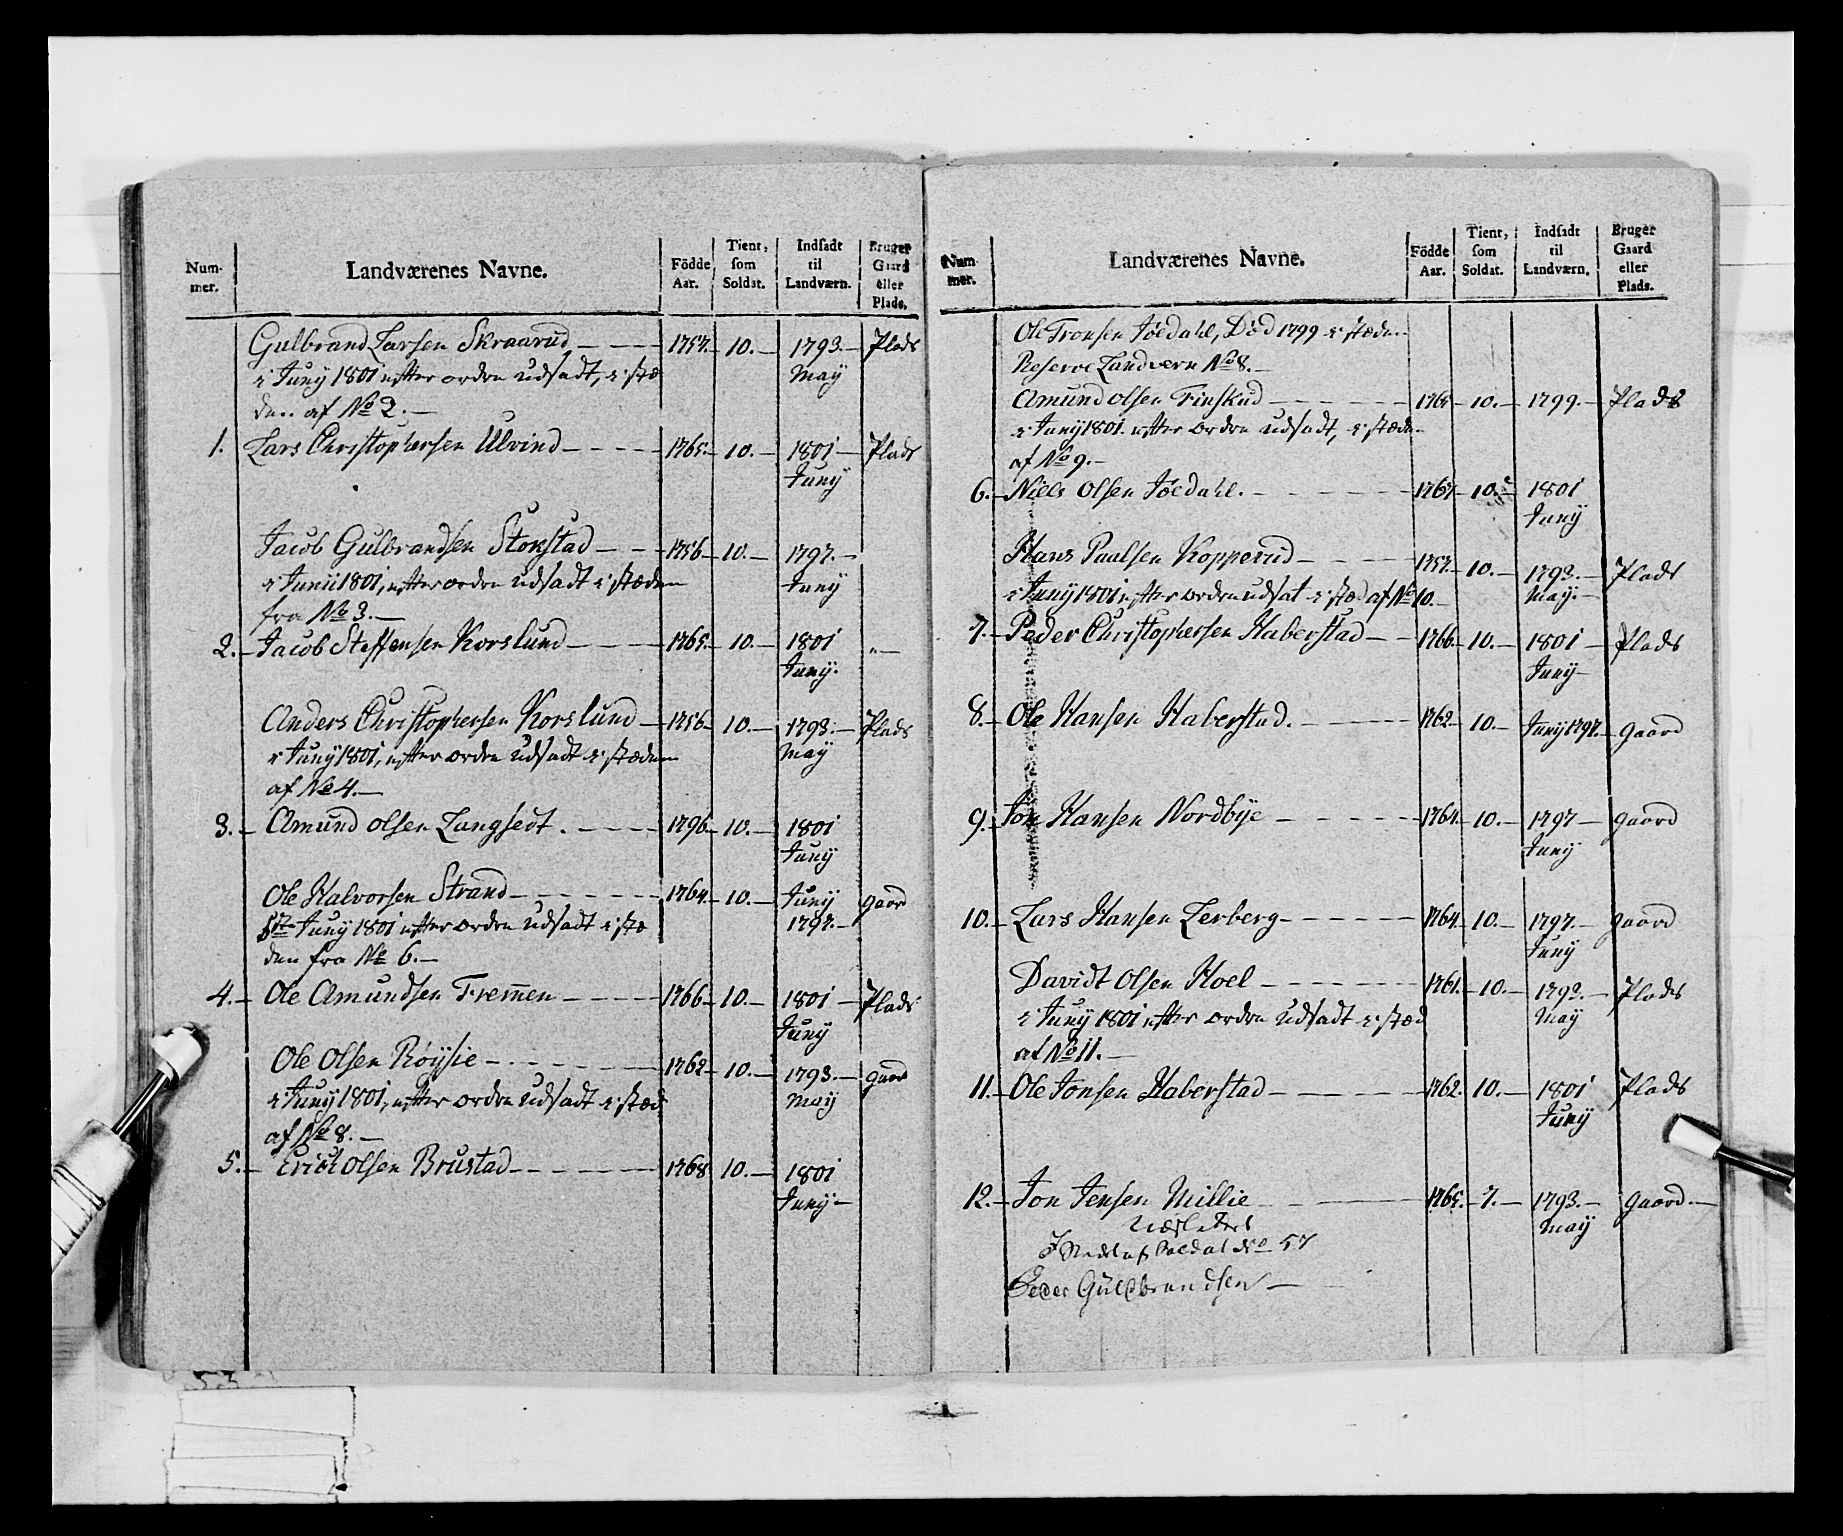 Nummer. Landværenes Navne. Födde Aar. Tient, som Soldat. Indsadt til Landværn. Bruger Gaard eller Plads.
Gulbrand Larsen Skraarud — 1757. 10. — 1793. — Plads
i Juny 1801 efter ordre udsadt, i stæ May
den af No 2. —
1. Lars Christophersen Ulvind — 1765. 10. — 1801 — Plads
Juny
Jacob Gulbrandsen Storstad — 1756 — 10. — 1797. —
i Junii 1801, efter ordre udsadt i stæden Juny
fra No 3. —
2. — Jacob Steffensen Korslund — 1765. 10. — 1801 „ —
Juny.
Anders Christophersen Korslund — 1756 — 10. — 1793. — Plads
i Juny 1801, efter ordre udsadt i stæden May
af No 4. —
3. — Amund olsen Langsedt. — 1796 — 10. — 1801
Juny
Ole Halvorsen Strand — 1764. 10. — Juny gaard
Juny 1801 efter ordre udsadt i stæ 1797. —
den fra No 6. —
4. — Ole Amundsen Fremmen — 1766 — 10. — 1801 — Plads
Juny
Ole Olsen Röysie — 1762 — 10. — 1793. — gaard
i Juny 1801, efter ordre udsadt i stæd May
af No 8. —
5. — Erich Olsen Brustad — 1768 10. — 1801
Juny —
Nummer. Landværenes Navne. Födde Aar. Tient, som Soldat. Indsadt til Landværn. Bruger Gaard eller Plads.
Ole Tronsen Jöedahl, Död 1799 i stæden
Reserve Landværn No 8. —
Amund olsen Finskud — 1765 — 10. — 1799. — Plads
i Juny 1801. efter ordre udsadt, i stæden
af No 9. —
6. — Niels Olsen Jöedahl. — 1767 — 10. — 1801
Juny
Hans Paulsen Kopperud — 1757. — 10. — 1793. — Plads
i Juny 1801 efter ordre udsat i stæd af No 10. — May. —
7. — Peder Christophersen Haberstad — 1766 — 10. — 1801 — Plads
Juny —
8. — Ole Hansen Haberstad. — 1762 — 10. — Juny 1797. — gaard
9. — Jon Hansen Nordbye — 1764. — 10. — 1797 — gaard
Juny
10. — Lars Hansen Lerberg — 1764 — 10. — 1797. — gaard
Juny
Davidt Olsen Hoel — 1761. — 10. — 1793. — Plads
i Juny 1801 efter ordre udsadt i stæd May
af No 11. —
11. — Ole Jonsen Haberstad — 1762. 10. — 1801 Plads
Juny
12. — Jon Jensen Millie — 1765. — 7. — 1793. — gaard. —
May
I Stedet af Soldat No 57
Peder Gulbrandsen —